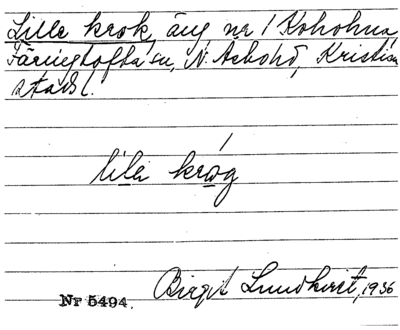 Lille krok, äng nr 1 Koholma,
Färingtofta sn, N. Åsbohd, Kristian
stads l.
lila kråg
Nr 5494.
Birgit Lundkvist, 1936